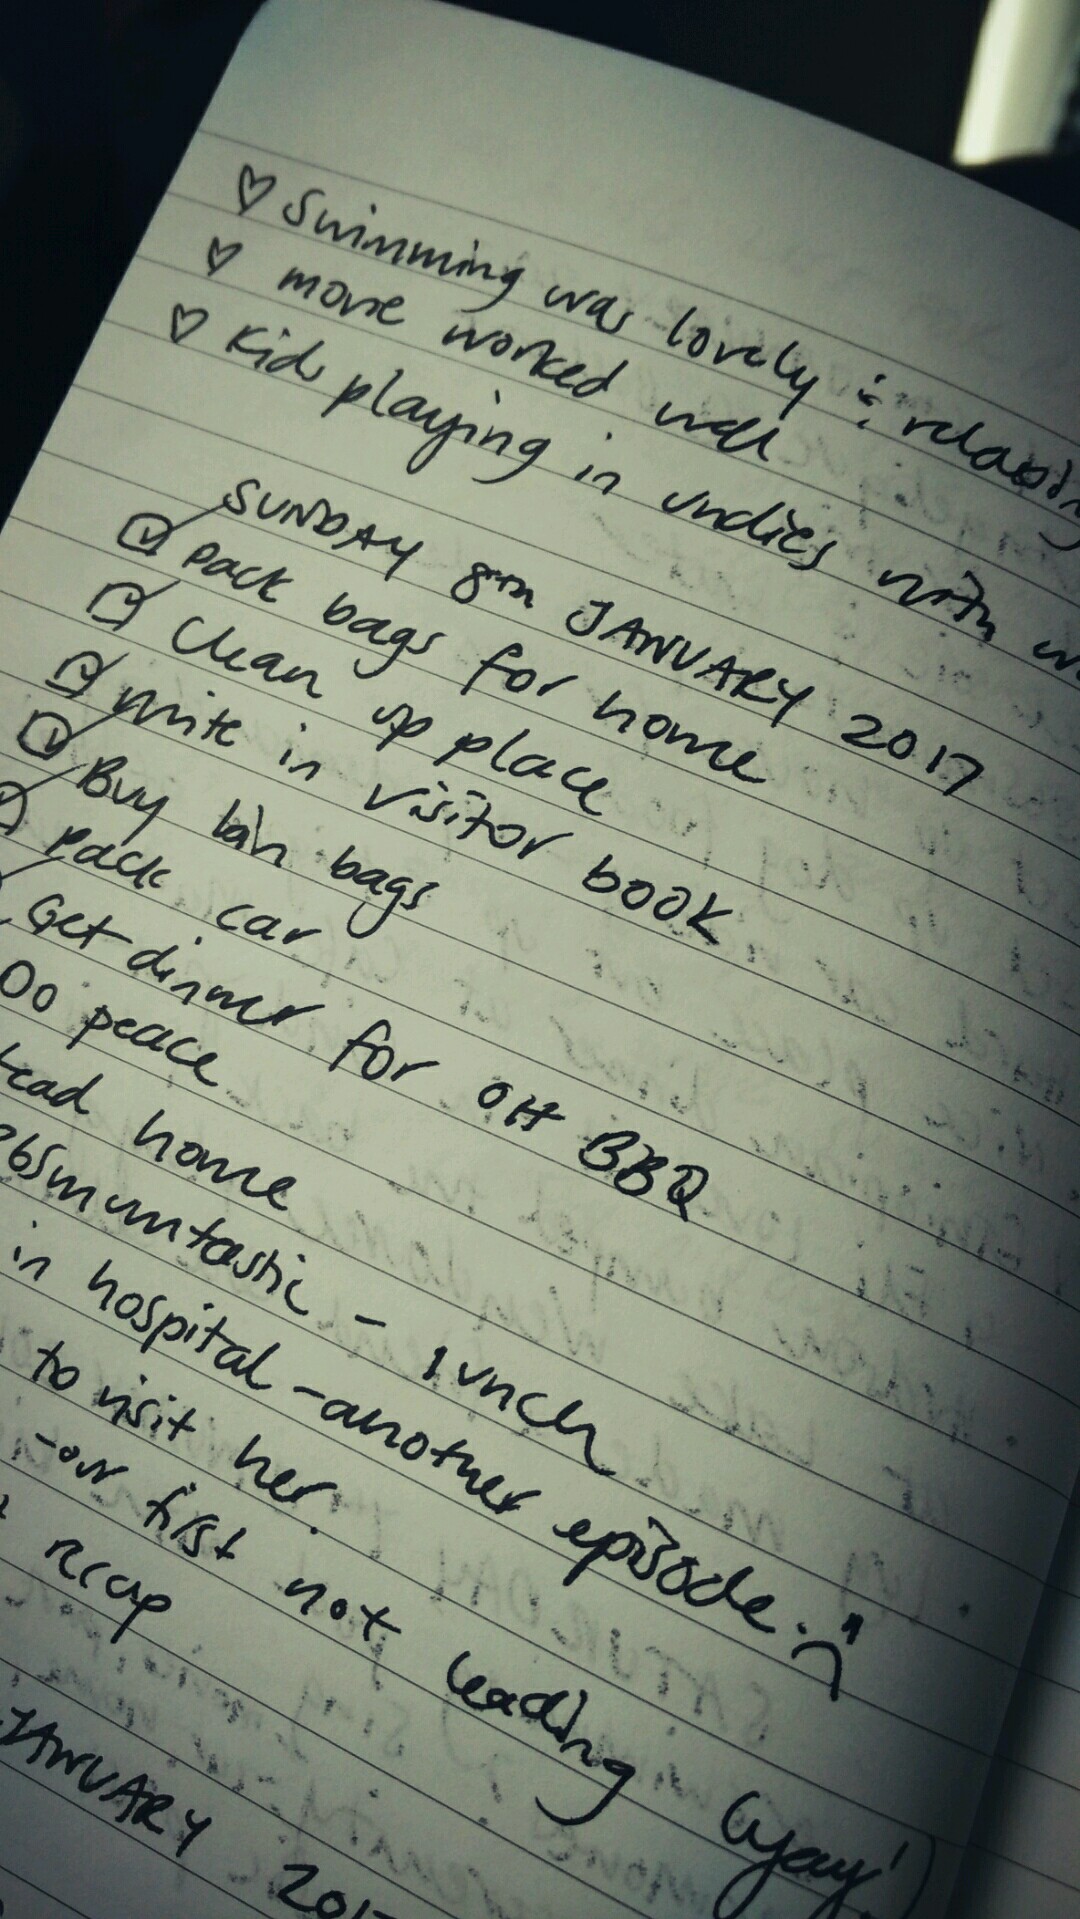 ♡ Swimming was lovely & relaxing
♡ movie worked well
♡ Kids playing in undies with
SUNDAY 8TH JANUARY 2017
☑ Pack bags for home
☑ Clean up place
☑ Write in visitor book
☑ Buy bin bags
☑ Pack car
Get dinner for OH BBQ
peace
home
365muntastic - lunch
in hospital - another episode. :(
to visit her.
- our first not leading (yay!)
recap
JANUARY 201